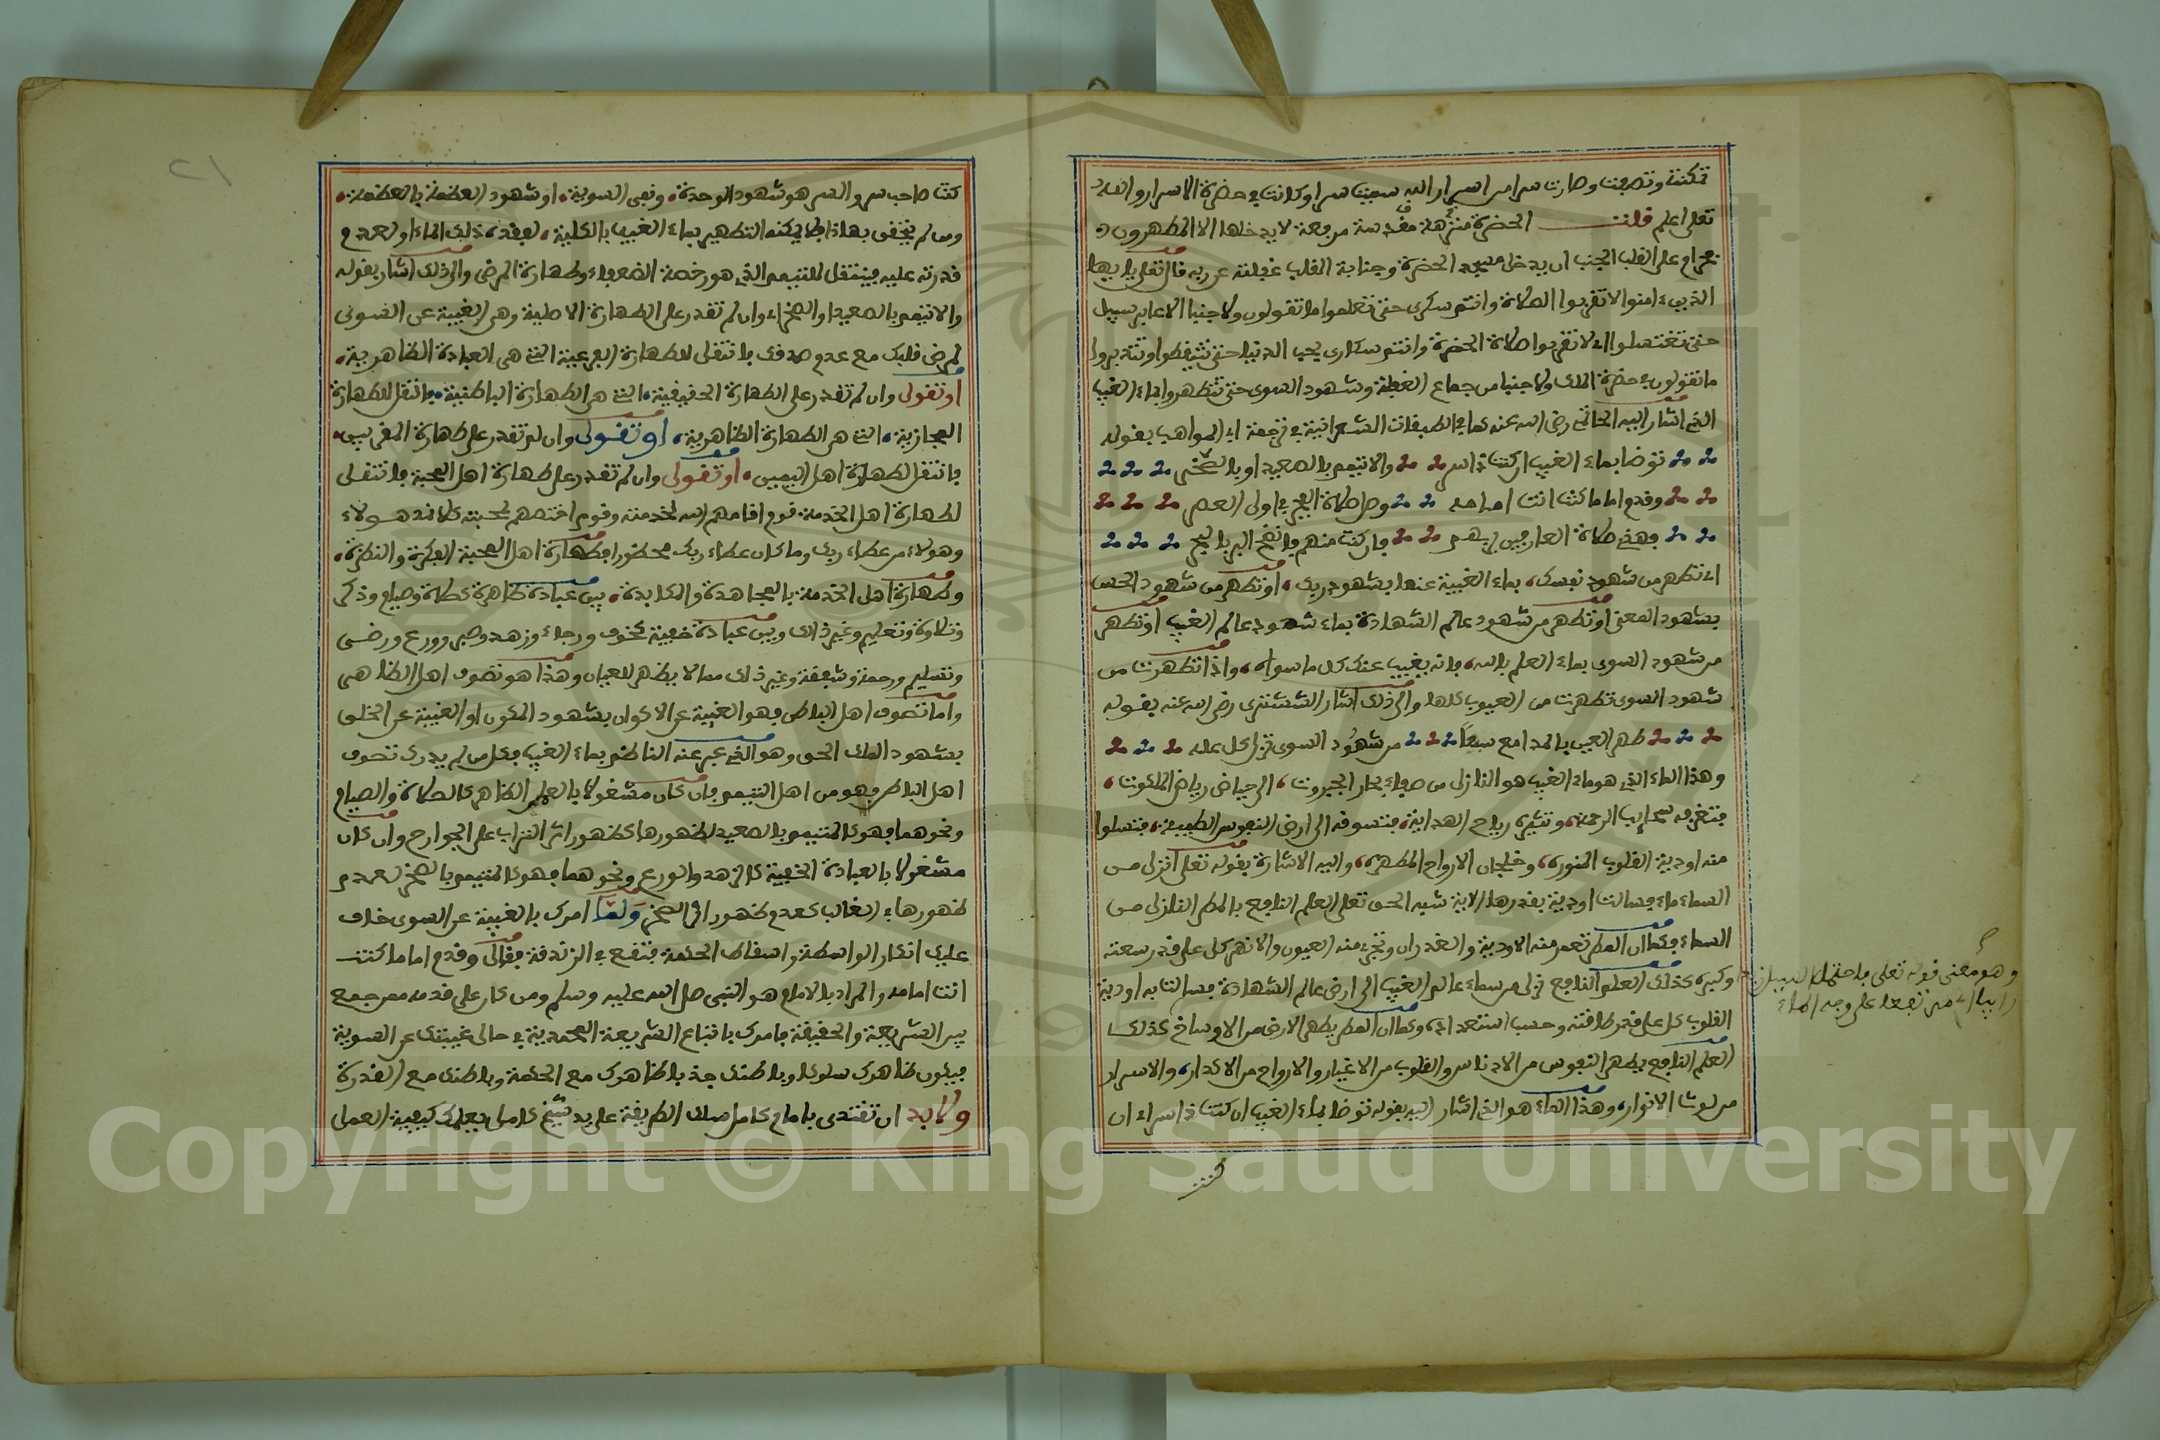 تمكنت وتصرفت وصارت سرا من اسرار الله سميت سرا وكانت في حضرة الاسرار والله
تعلى اعلم قلت الحضرة منزهة مقدسة مرفعة لا يدخلها الا المطهرون
بحرام على القلب الجنب ان يدخل مسجد الحضرة وجنابة القلب غفلته عن ربه قال تعلى يا ايها
الذين ءامنوا لا تقربوا الصلاة وانتم سكرى حتى تعلموا ما تقولون ولا جنبا الا عابري سبيل
حتى تغتسلوا اي لا تقربوا صلاة الحضرة وانتم سكارى بحب الدنيا حتى تتيقظوا وتتدبروا
ما تقولون في حضرة الملك ولا جنبا من جماع الغفلة وشهود السوى حتى تتطهروا بماء الغيب
الذي اشار اليه الحاتمي رضي الله عنه كما في الطبقات الشعرانية في ترجمة ابي المواهب بقوله
توضا بماء الغيب ان كنت ذا سر والا تيمم بالصعيد او بالصخر
وقدم اماما كنت انت امامه وصل صلاة الفجر في اول العصر
فهذي صلاة العارفين بربهم فان كنت منهم فانضح البر بالبحر
اي تطهر من شهود نفسك بماء الغيبة عنها بشهود ربك او تطهر من شهود الحس
بشهود المعنى او تطهر من شهود عالم الشهادة بماء شهود عالم الغيب او تطهر
من شهود السوى بماء العلم بالله فانه يغيب عنك كل ما سواه واذا تطهرت من
شهود السوى تطهرت من العيوب كلها والى ذلك اشار الششتري رضي الله عنه بقوله
طهر العين بالمدامع سبعا من شهود السوى تزل كل علة
وهذا الماء الذي هو ماء الغيب هو النازل من صفاء بحار الجبروت الى حياض رياض الملكوت
فتغرفه سحايب الرحمة وتثيره رياح الهداية فتسوقه الى ارض النفوس الطيبة فتملوا
منه اودية القلوب المنورة وخلجان الارواح المطهرة واليه الاشارة بقوله تعلى انزل من
السماء ماء فسالت اودية بقدرها الاية شبه الحق تعلى العلم النافع بالمطر النازل من
السماء فكما ان المطر تعمر منه الاودية والغدران وتجري منه العيون والانهر كل على قدر سعته
وكبره كذلك العلم النافع نزل من سماء عالم الغيب الى ارض عالم الشهادة فسالت به اودية
القلوب كل على قدر طاقته وحسب استعداده وكما ان المطر يطهر الارض من الاوساخ كذلك
العلم النافع يطهر النفوس من الادناس والقلوب من الاغيار والارواح من الاكدار والاسرار
من لوث الانوار وهذا الماء هو الذي اشار اليه بقوله توضا بماء الغيب ان كنت ذا سراء ان
كنت
وهو معنى قوله تعلى فاحتمل السيل زبدا
رابيا اي مرتفعا على وجه الماء
٢١
كنت صاحب سر والسر هو شهود الوحدة ونفي السوية او شهود العظمة بالعظمة
ومن لم يتحقق بهذا فلا يمكنه التطهير بماء الغيب بالكلية لفقده ذلك الماء او لعدم
قدرته عليه فينتقل للتيمم الذي هو رخصة الضعفاء وطهارة المرضى والى ذلك اشار بقوله
والا تيمم بالصعيد او بالصخر اي وان لم تقدر على الطهارة الاصلية وهي الغيبة عن السوى
لمرض قلبك مع عدم صدقك فانتقل للطهارة الفرعية التي هي العبادة الظاهرية
او تقول وان لم تقدر على الطهارة الحقيقية التي هي الطهارة الباطنية فانتقل للطهارة
المجازية التي هي الطهارة الظاهرية او تقول وان لم تقدر على طهارة المقربين
فانتقل لطهارة اهل اليمين او تقول وان لم تقدر على طهارة اهل المحبة فانتقل
لطهارة اهل الخدمة قوم اقامهم الله لخدمته وقوم اختصهم بمحبته كلا نمد هولاء
وهولاء من عطاء ربك وما كان عطاء ربك محظورا فطهارة اهل المحبة الفكرة والنظرة
وطهارة اهل الخدمة بالمجاهدة والمكابدة بين عبادة ظاهرة كصلاة وصيام وذكر
وتلاوة وتعليم وغير ذلك وبين عبادة خفية كخوف ورجاء وزهد وصبر وورع ورضى
وتسليم ورحمة وشفقة وغير ذلك مما لا يظهر للعيان وهذا هو تصوف اهل الظاهر
واما تصوف اهل الباطن فهو الغيبة عن الاكوان بشهود المكون او الغيبة عن الخلق
بشهود الملك الحق وهو الذي عبر عنه الناظم بماء الغيب فكل من لم يدرك تصوف
اهل الباطن فهو من اهل التيمم فان كان مشغولا بالعلم الظاهر كالصلاة والصيام
ونحوهما فهو كالمتيمم بالصعيد لظهورها كظهور اثر التراب على الجوارح وان كان
مشغولا بالعبادة الخفية كالزهد والورع ونحوهما فهو كالمتيمم بالصخر لعدم
ظهورها في الغالب كعدم ظهور اثر الصخر ولما امرك بالغيبة عن السوى خاف
عليك انكار الواسطة واسقاط الحكمة فتقع في الزندقة فقال وقدم اماما كنت
انت امامه والمراد بالامام هو النبي صلى الله عليه وسلم ومن كان على قدمه ممن جمع
بين الشريعة والحقيقة فامرك باتباع الشريعة المحمدية في حال غيبتك عن السوية
فيكون ظاهرك سلوكا وباطنك جذبا ظاهرك مع الحكمة وباطنك مع القدرة
ولا بد ان تقتدي بامام كامل سلك الطريقة على يد شيخ كامل يعلمك كيفية العمل
Copyright © King Saud University